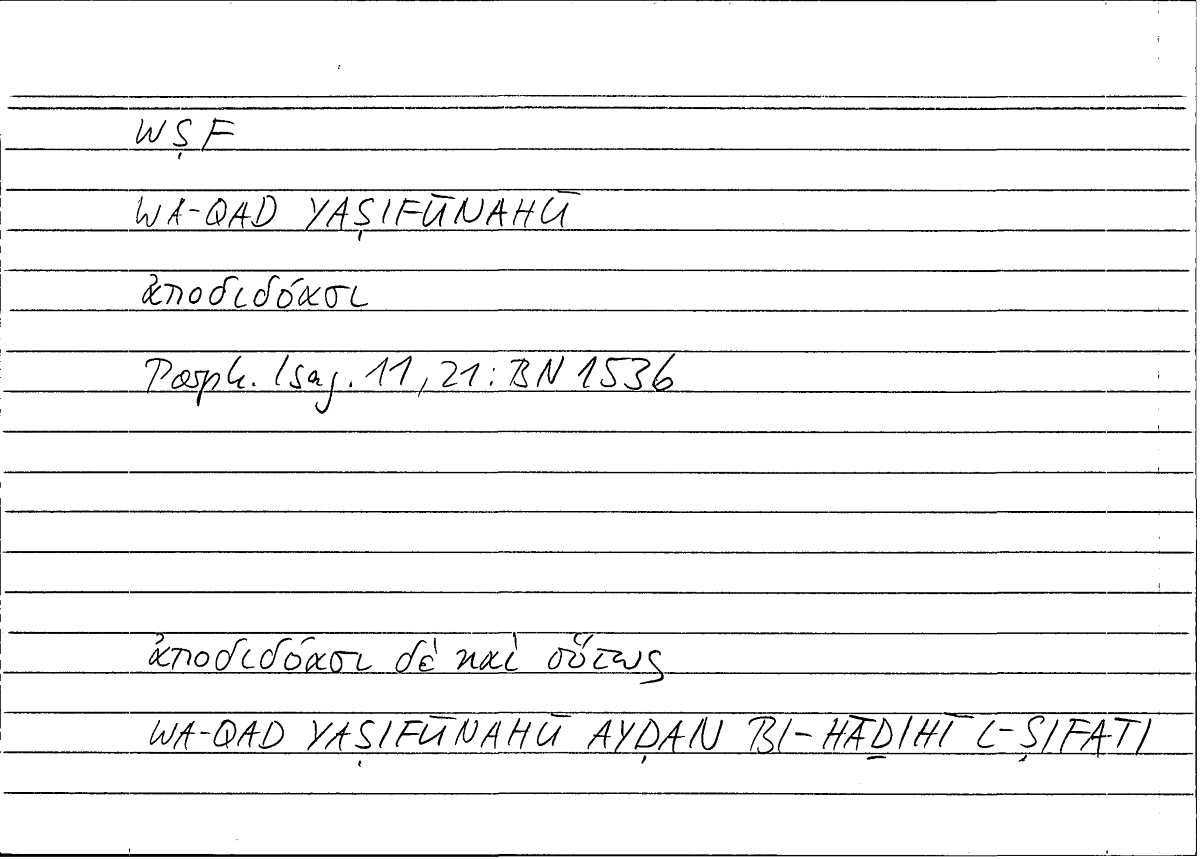 WṢF
WA-QAD YAṢIFŪNAHŪ
ἀποδιδόασι
Porph. Isag. 11, 21: BN 1536
ἀποδιδόασι δὲ καὶ οὕτως
WA-QAD YAṢIFŪNAHŪ AYḌAN BI-HĀḎIHĪ L-ṢIFATI